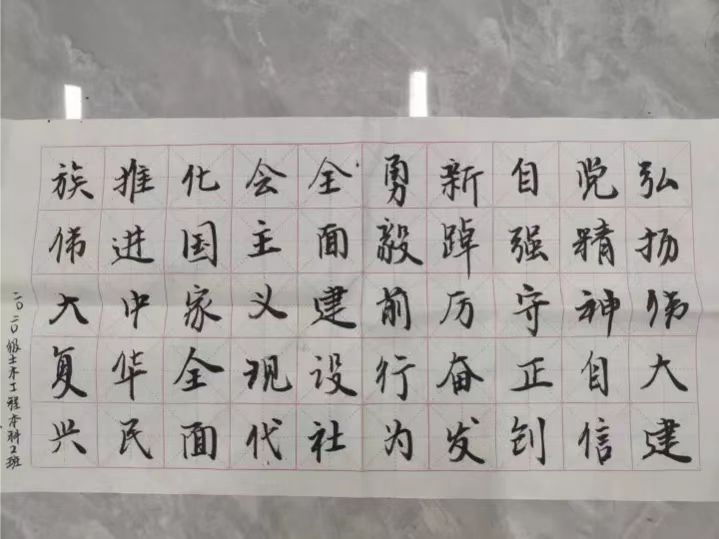 弘扬伟大建
党精神自信
自强守正创
新踔厉奋发
勇毅前行为
全面建设社
会主义现代
化国家全面
推进中华民
族伟大复兴
二〇二〇级土木工程本科2班